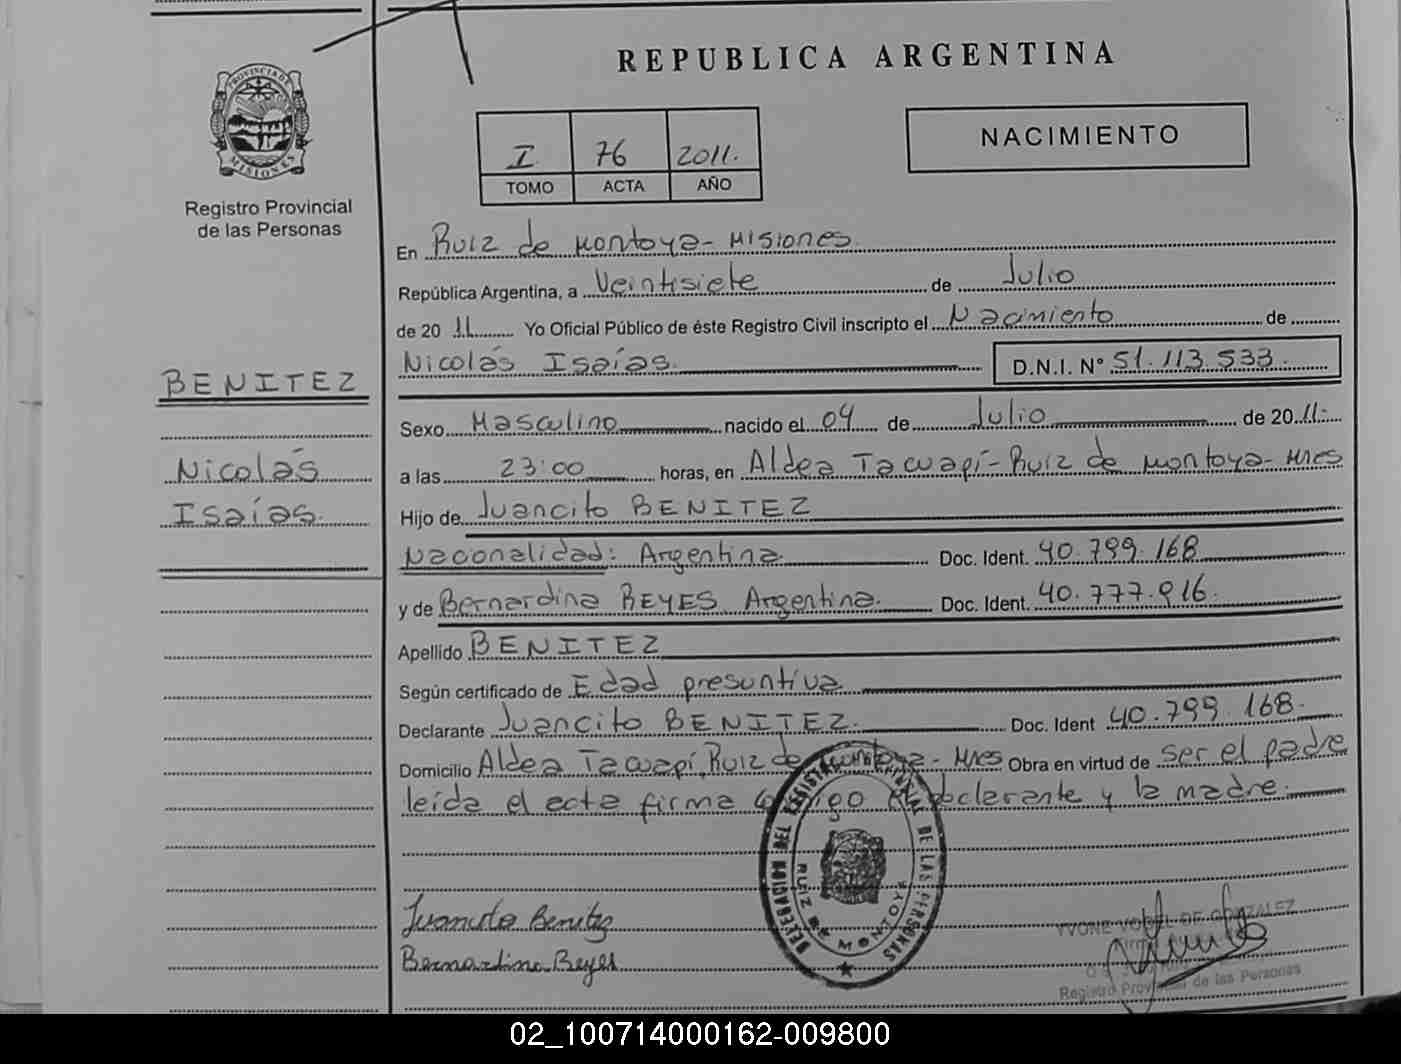 REPUBLICA ARGENTINA
PROVINCIA DE
MISIONES
Registro Provincial
de las Personas
I 76 2011.
TOMO ACTA AÑO
NACIMIENTO
En Ruiz de Montoya - Misiones
República Argentina, a Veintisiete de Julio
de 2011 Yo Oficial Público de éste Registro Civil inscripto el Nacimiento de
Nicolás Isaías. D.N.I. N° 51.113.533.
BENITEZ
Nicolás
Isaías.
Sexo Masculino nacido el 04 de Julio de 2011.-
a las 23:00 horas, en Aldea Tacuapí - Ruiz de Montoya - Mnes
Hijo de Juancito BENITEZ
Nacionalidad: Argentina. Doc. Ident. 40.799.168
y de Bernardina REYES Argentina. Doc. Ident. 40.777.916.
Apellido BENITEZ
Según certificado de Edad presuntiva
Declarante Juancito BENITEZ. Doc. Ident 40.799.168.
Domicilio Aldea Tacuapí, Ruiz de Montoya - Mnes Obra en virtud de ser el padre
leída el acta firma conmigo el declarante y la madre.
DELEGACION DEL REGISTRO PROVINCIAL DE LAS PERSONAS
RUIZ DE MONTOYA
Juancito Benitez
Bernardina Reyes
YVONE VOGEL DE GONZALEZ
Registro Provincial de las Personas
02_100714000162-009800